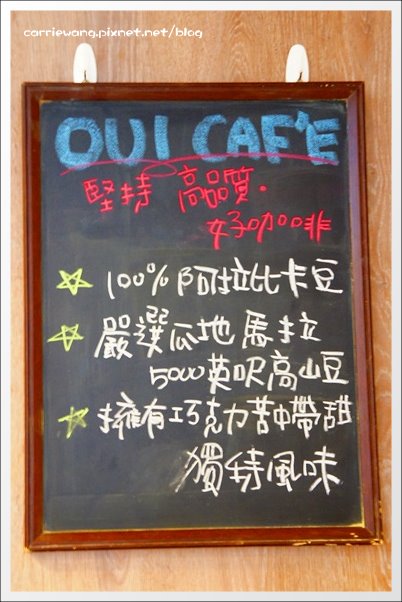 carriewang.pixnet.net/blog
OUI CAF'E
堅持 高品質.
好咖啡
100% 阿拉比卡豆
嚴選瓜地馬拉
5000英呎高山豆
擁有巧克力苦中帶甜
獨特風味